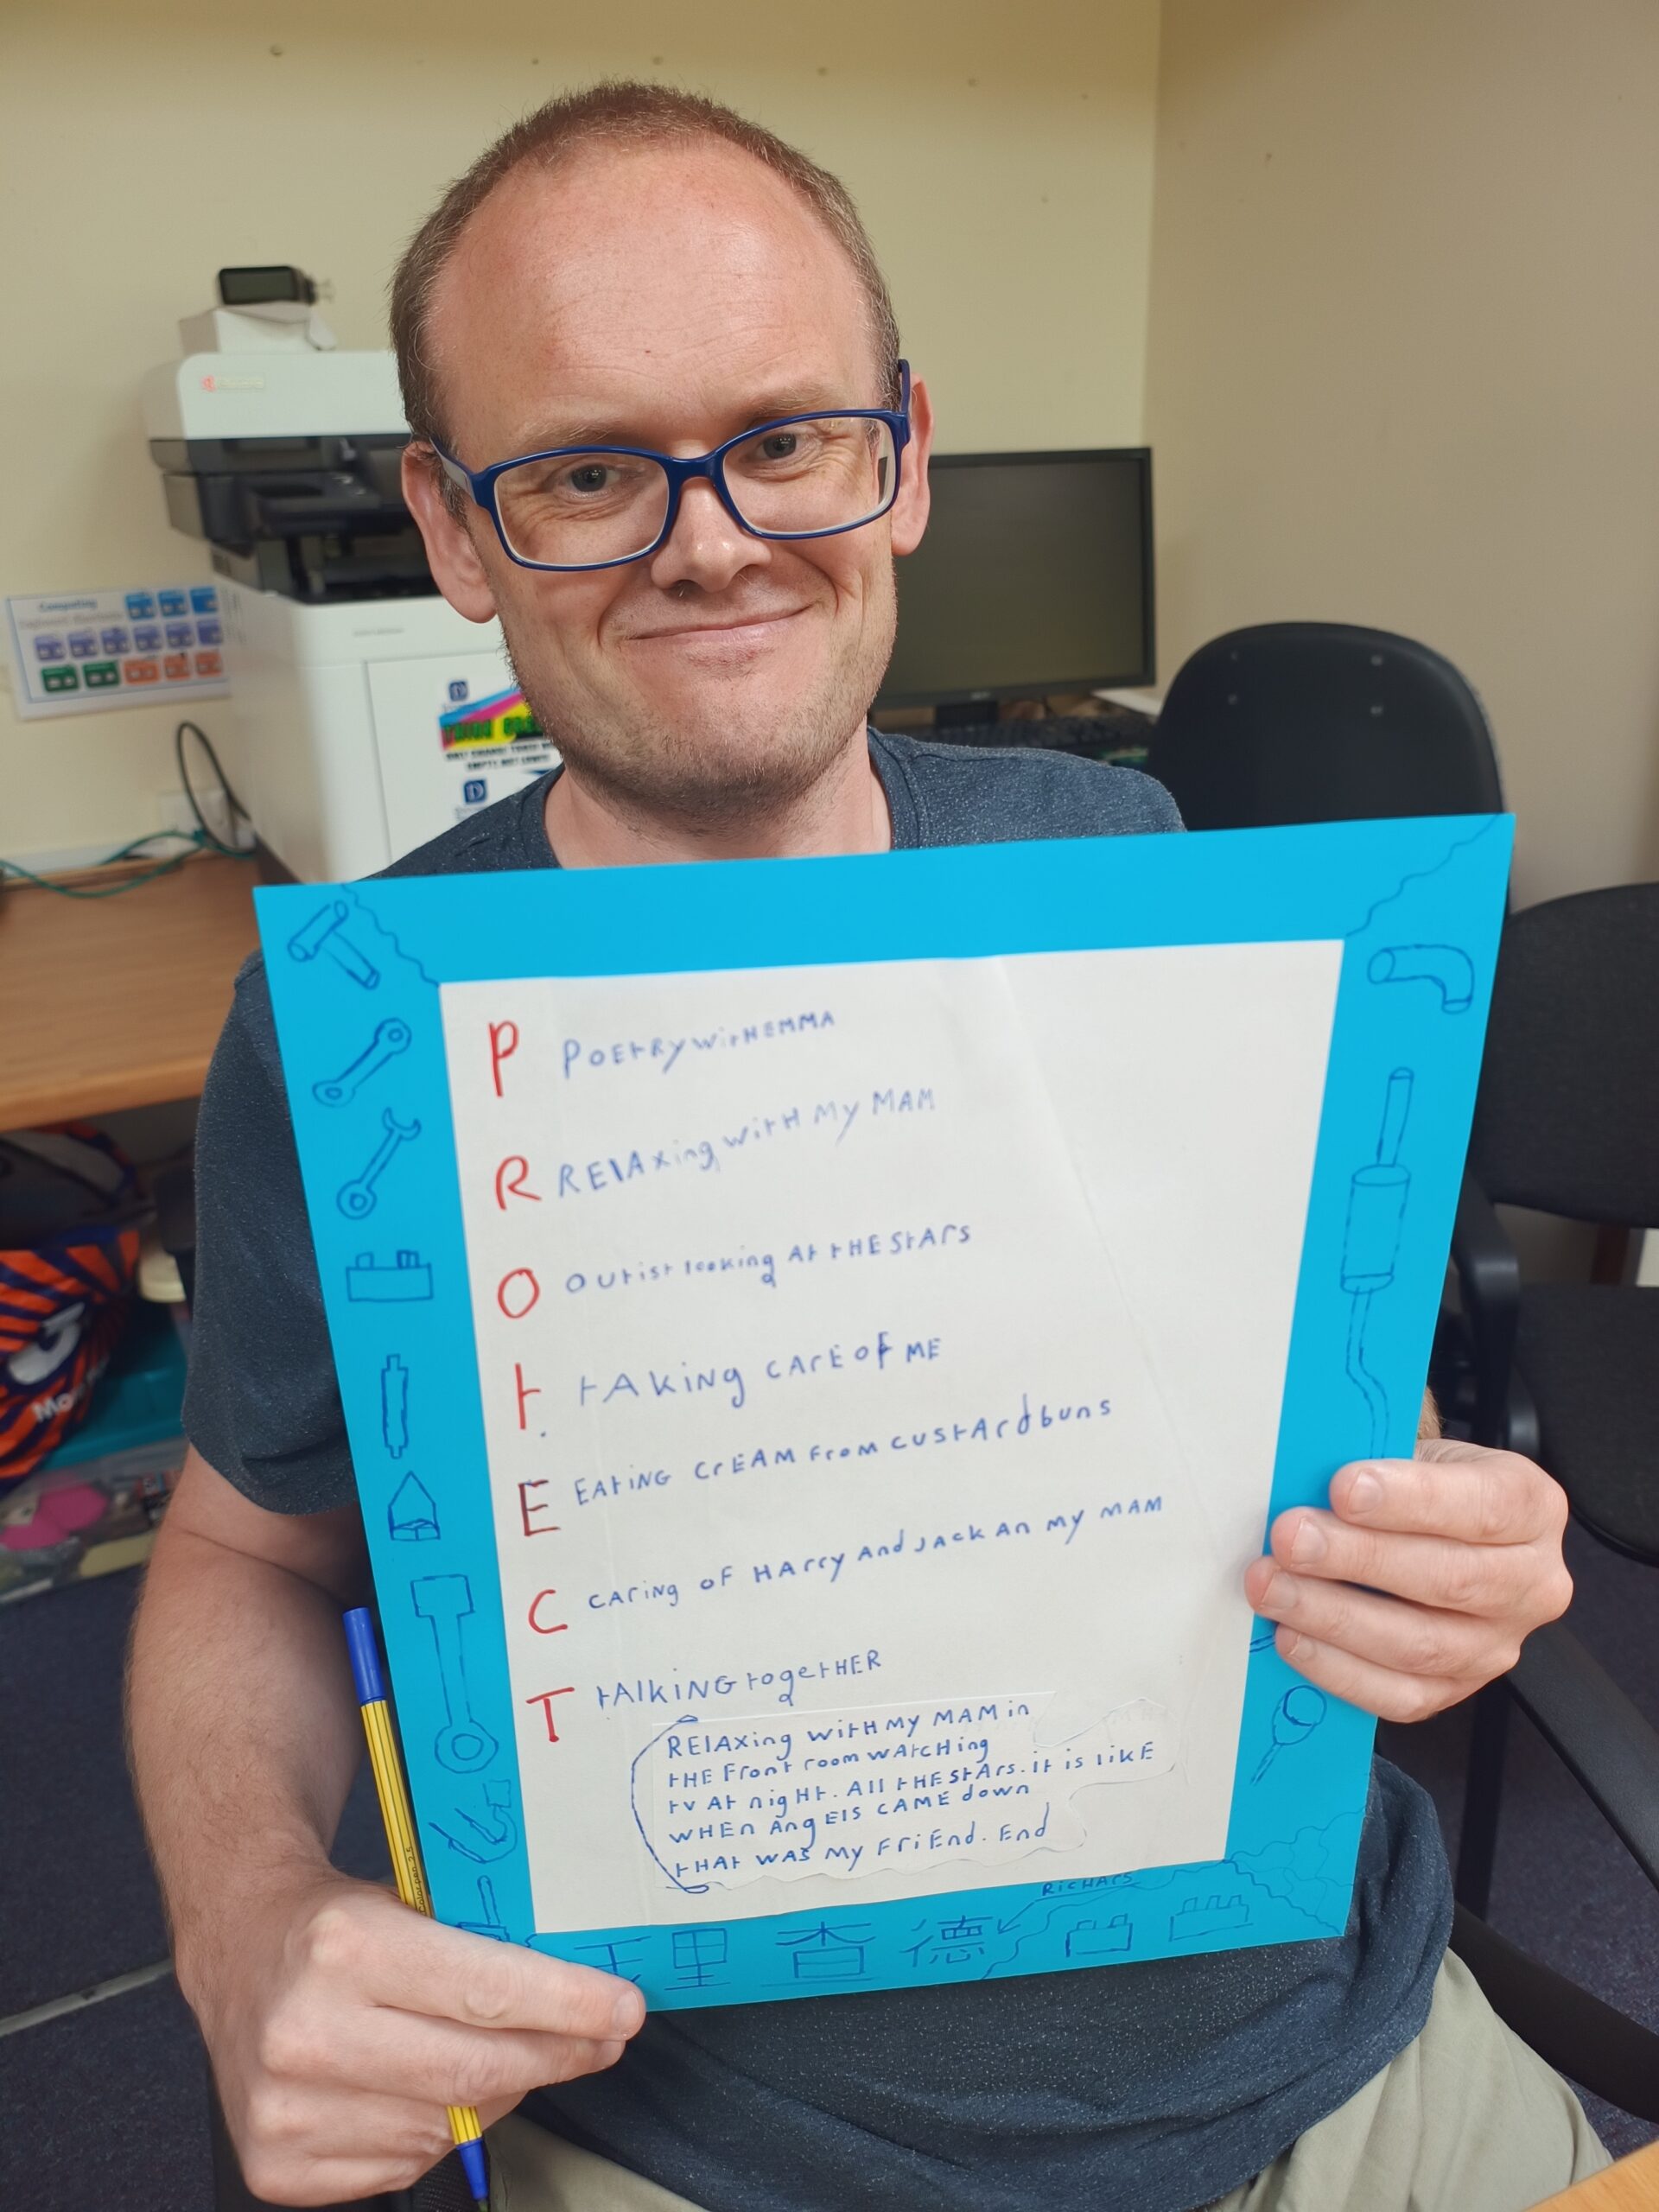 Computing
ONLY CHANGE TONER WHEN
EMPTY NOT LOWER
3
P POETRY WITH EMMA
R RElAxing with My MAM
O Outist looking At tHE StArs
t tAKing CArE of ME
E EAtiNG CrEAM From CUStArd buns
C CAring of HArry And JAck An My MAM
T tAlKiNG togetHER
RElAxing witH My MAM in
tHE Front room wAtcHing
tv At nigHt. All tHE StArs. it is likE
wHEn AngElS CAME down
tHAt wAS My FriEnd. End
RiCHArS
王里查德